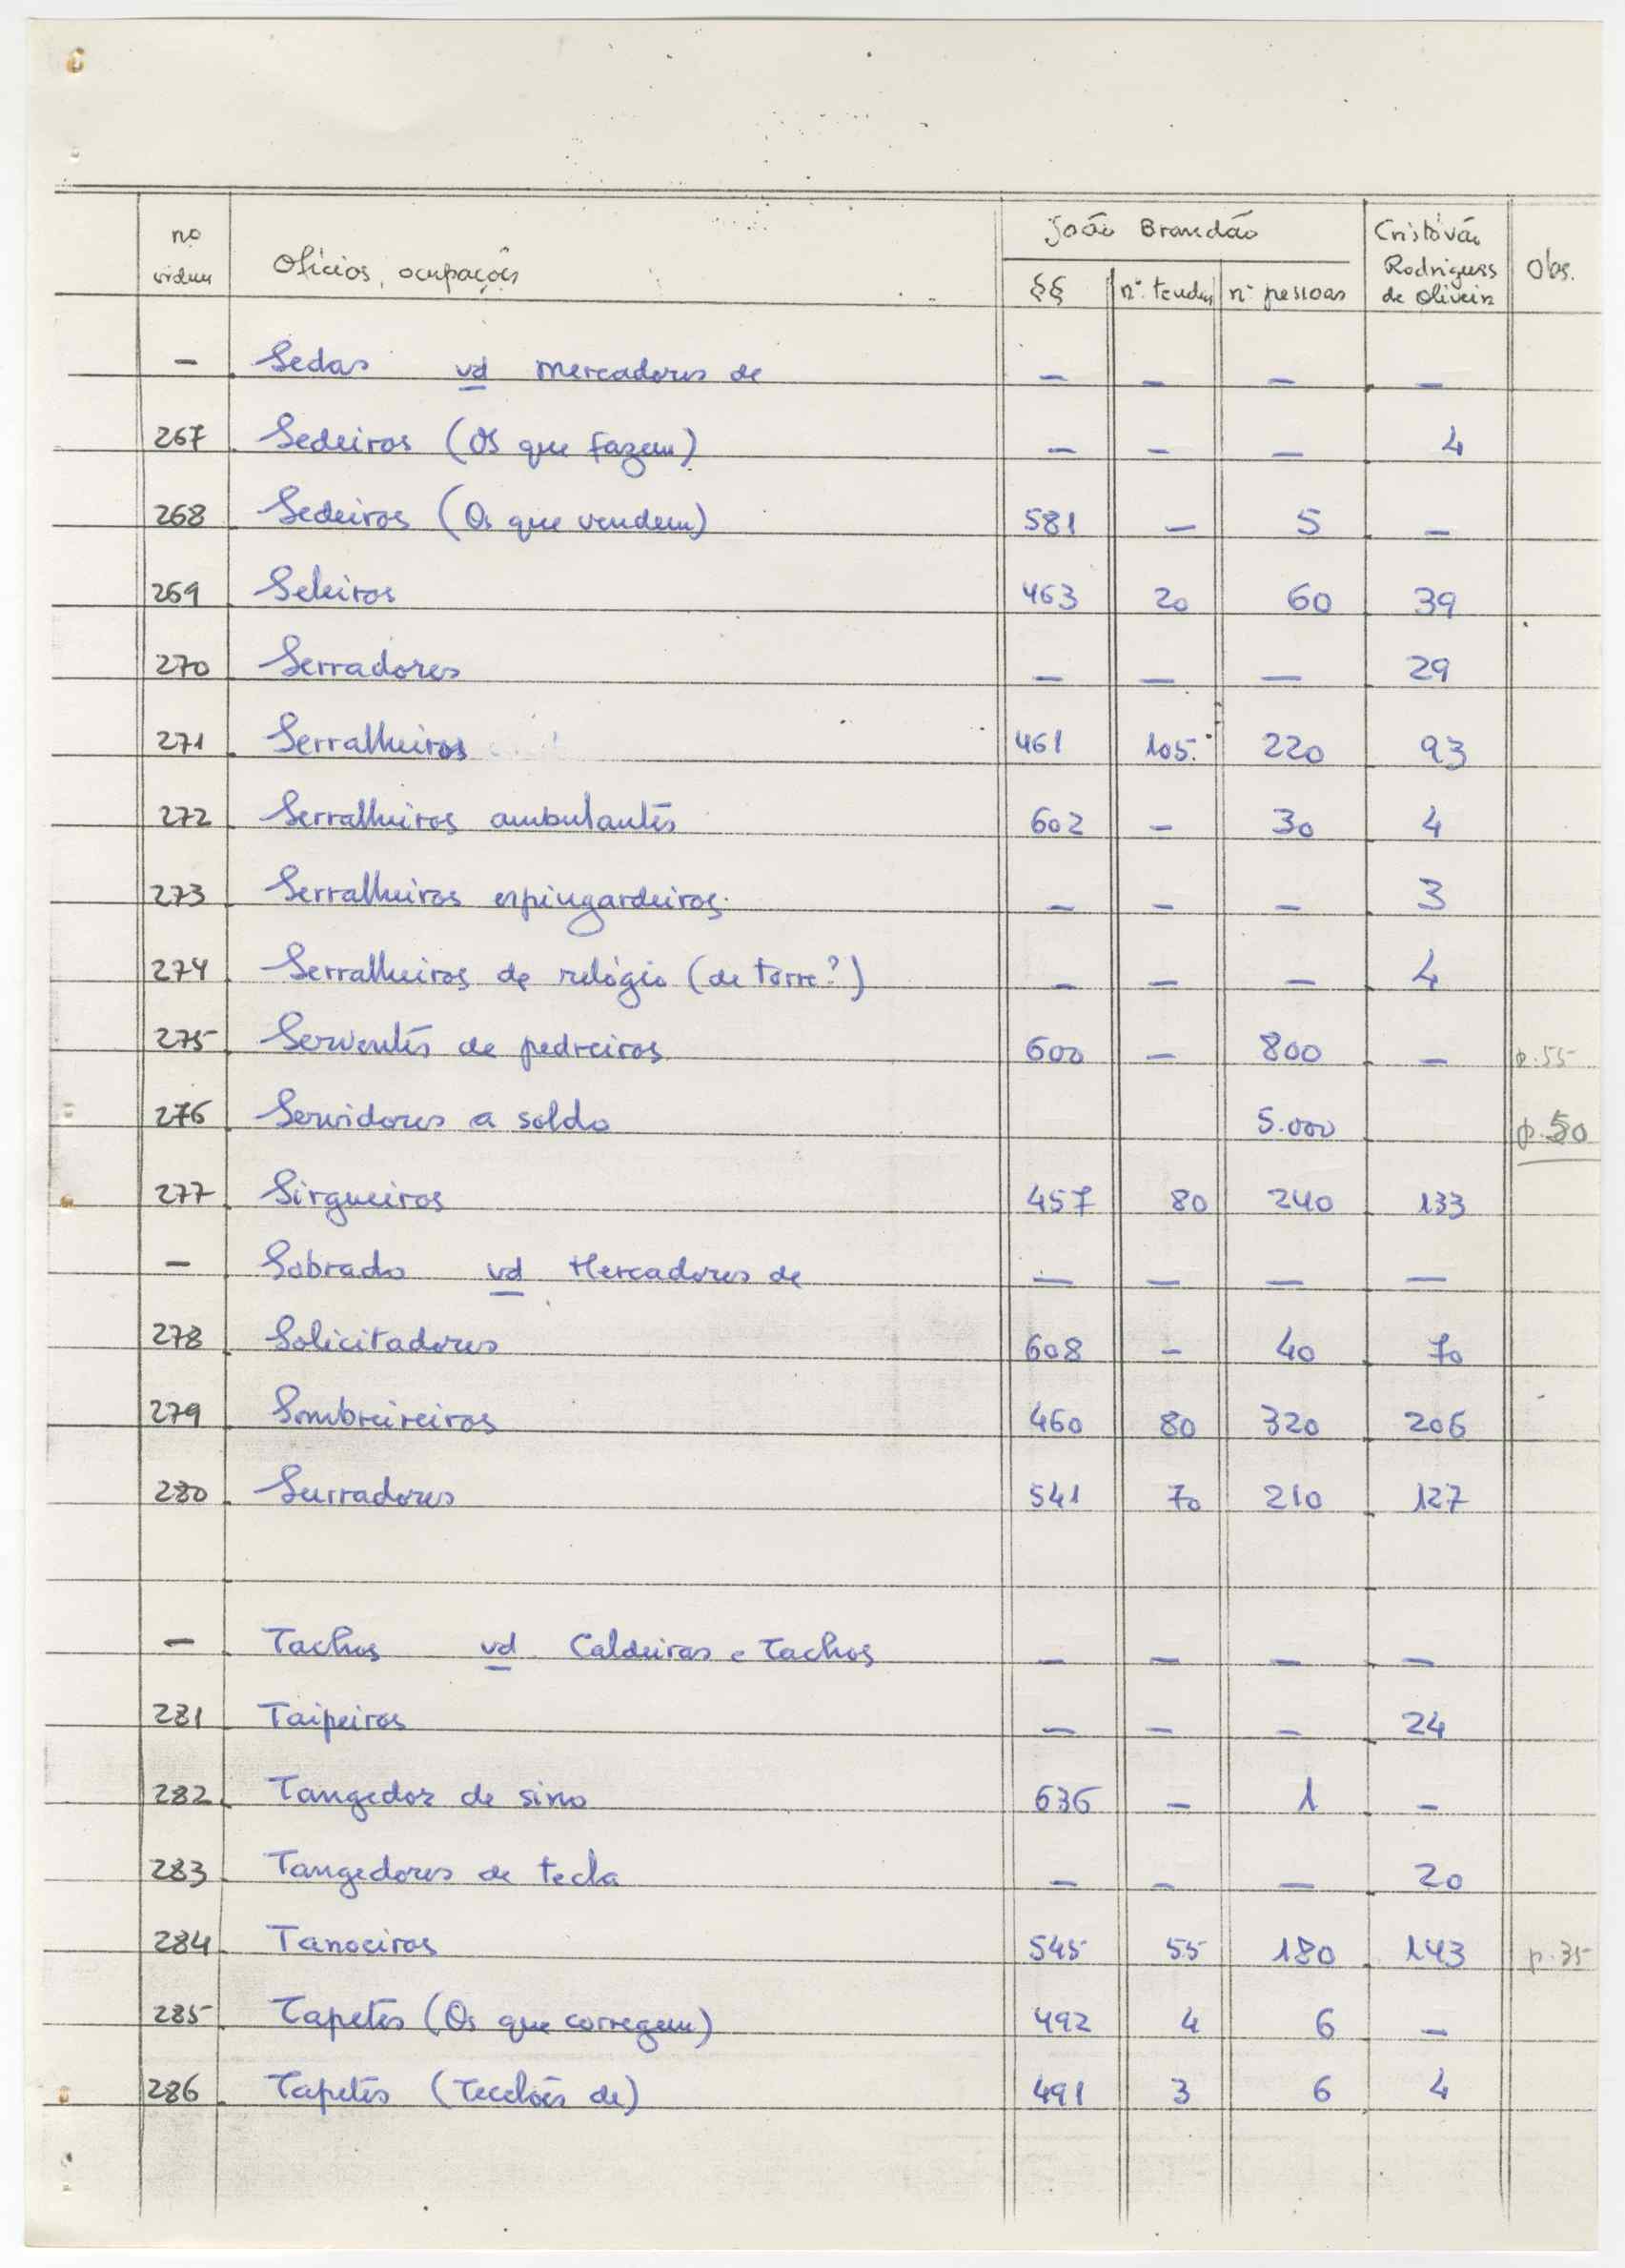 nº ordem Ofícios, ocupações João Brandão §§ nº tendas nº pessoas Cristóvão Rodrigues de Oliveira Obs.
– Sedas vd mercadores de – – – –
267 Sedeiros (Os que fazem) – – – 4
268 Sedeiros (Os que vendem) 581 – 5 –
269 Seleiros 463 20 60 39
270 Serradores – – – 29
271 Serralheiros 461 105 220 93
272 Serralheiros ambulantes 602 – 30 4
273 Serralheiros espingardeiros – – – 3
274 Serralheiros de relógio (de torre?) – – – 4
275 Serventes de pedreiros 600 – 800 – p.55
276 Servidores a soldo 5.000 p.50
277 Sirgueiros 457 80 240 133
– Sobrado vd Mercadores de – – – –
278 Solicitadores 608 – 40 70
279 Sombreireiros 460 80 320 206
280 Surradores 541 70 210 127
– Tachos vd Caldeiras e Tachos – – – –
281 Taipeiros – – – 24
282 Tangedor de sino 636 – 1 –
283 Tangedores de tecla – – – 20
284 Tanoeiros 545 55 180 143 p.35
285 Tapetes (Os que corregem) 492 4 6 –
286 Tapetes (Tecelões de) 491 3 6 4